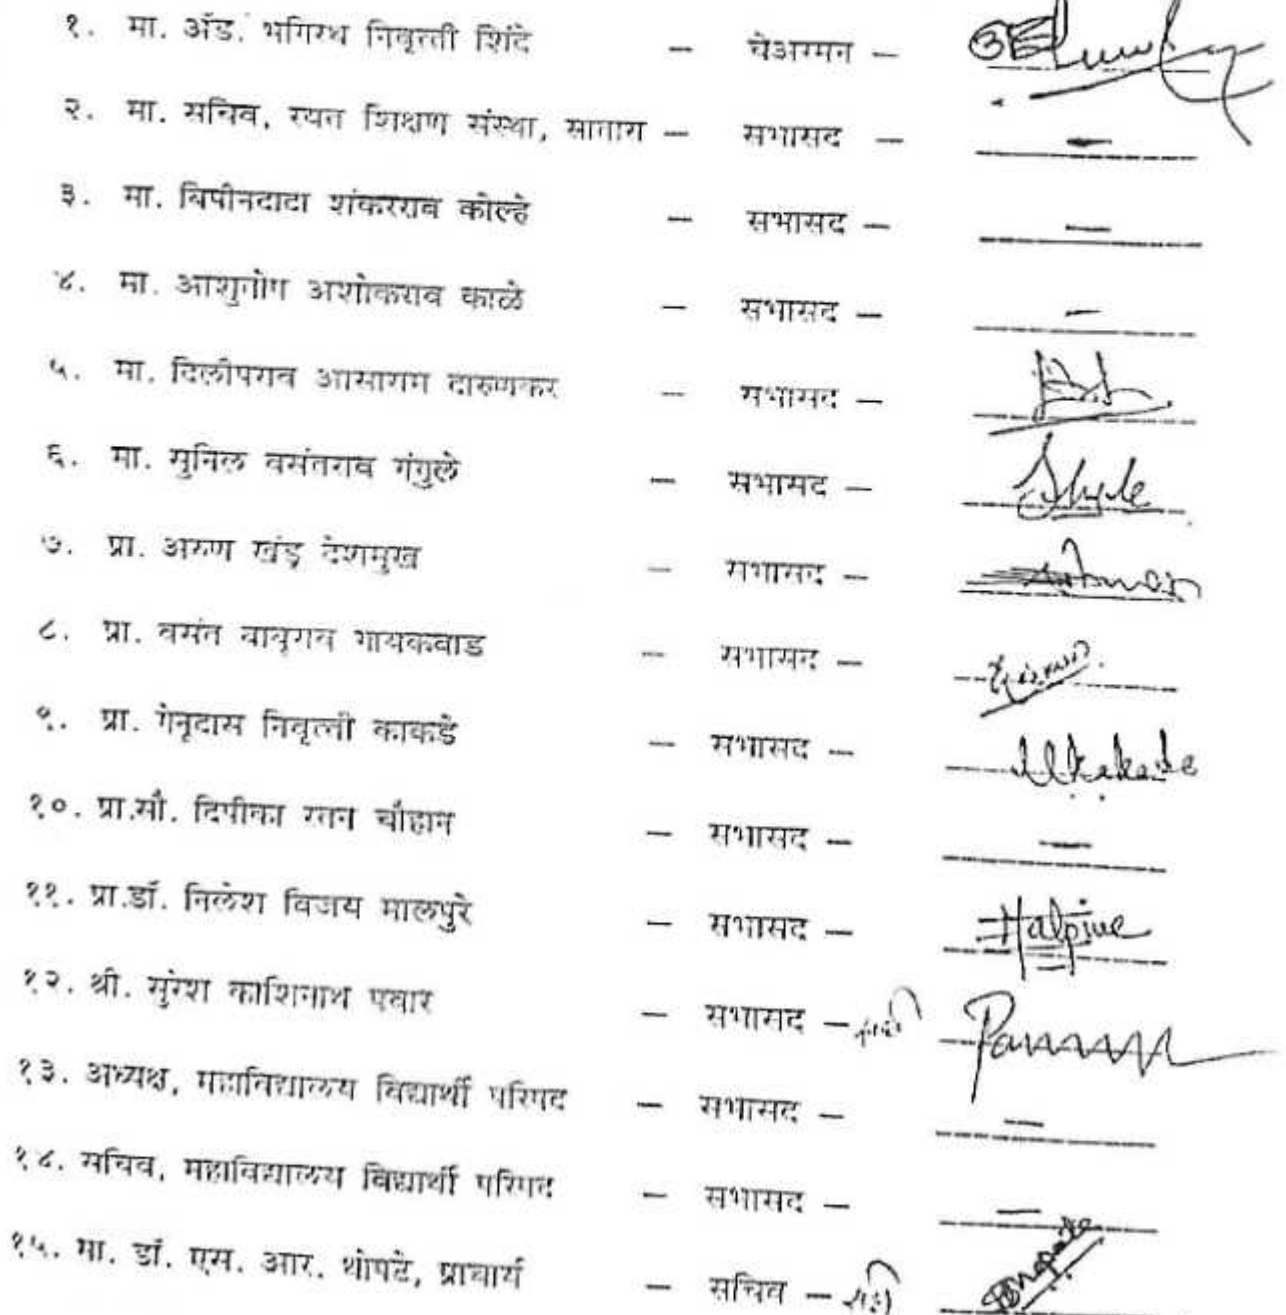 १. मा. ॲड. भगिरथ निवृत्ती शिंदे – चेअरमन –
२. मा. सचिव, रयत शिक्षण संस्था, सातारा – सभासद –
३. मा. बिपीनदादा शंकरराव कोल्हे – सभासद –
४. मा. आशुतोष अशोकराव काळे – सभासद –
५. मा. दिलीपराव आसाराम दारुणकर – सभासद –
६. मा. सुनिल वसंतराव गंगुले – सभासद –
७. प्रा. अरुण खंडू देशमुख – सभासद –
८. प्रा. वसंत बाबुराव गायकवाड – सभासद –
९. प्रा. गेनूदास निवृत्ती काकडे – सभासद – Kakade
१०. प्रा.सौ. दिपीका रतन चौहान – सभासद –
११. प्रा.डॉ. निलेश विजय मालपुरे – सभासद –
१२. श्री. सुरेश काशिनाथ पवार – सभासद –
१३. अध्यक्ष, महाविद्यालय विद्यार्थी परिषद – सभासद –
१४. सचिव, महाविद्यालय विद्यार्थी परिषद – सभासद –
१५. मा. डॉ. एस. आर. थोपटे, प्राचार्य – सचिव –